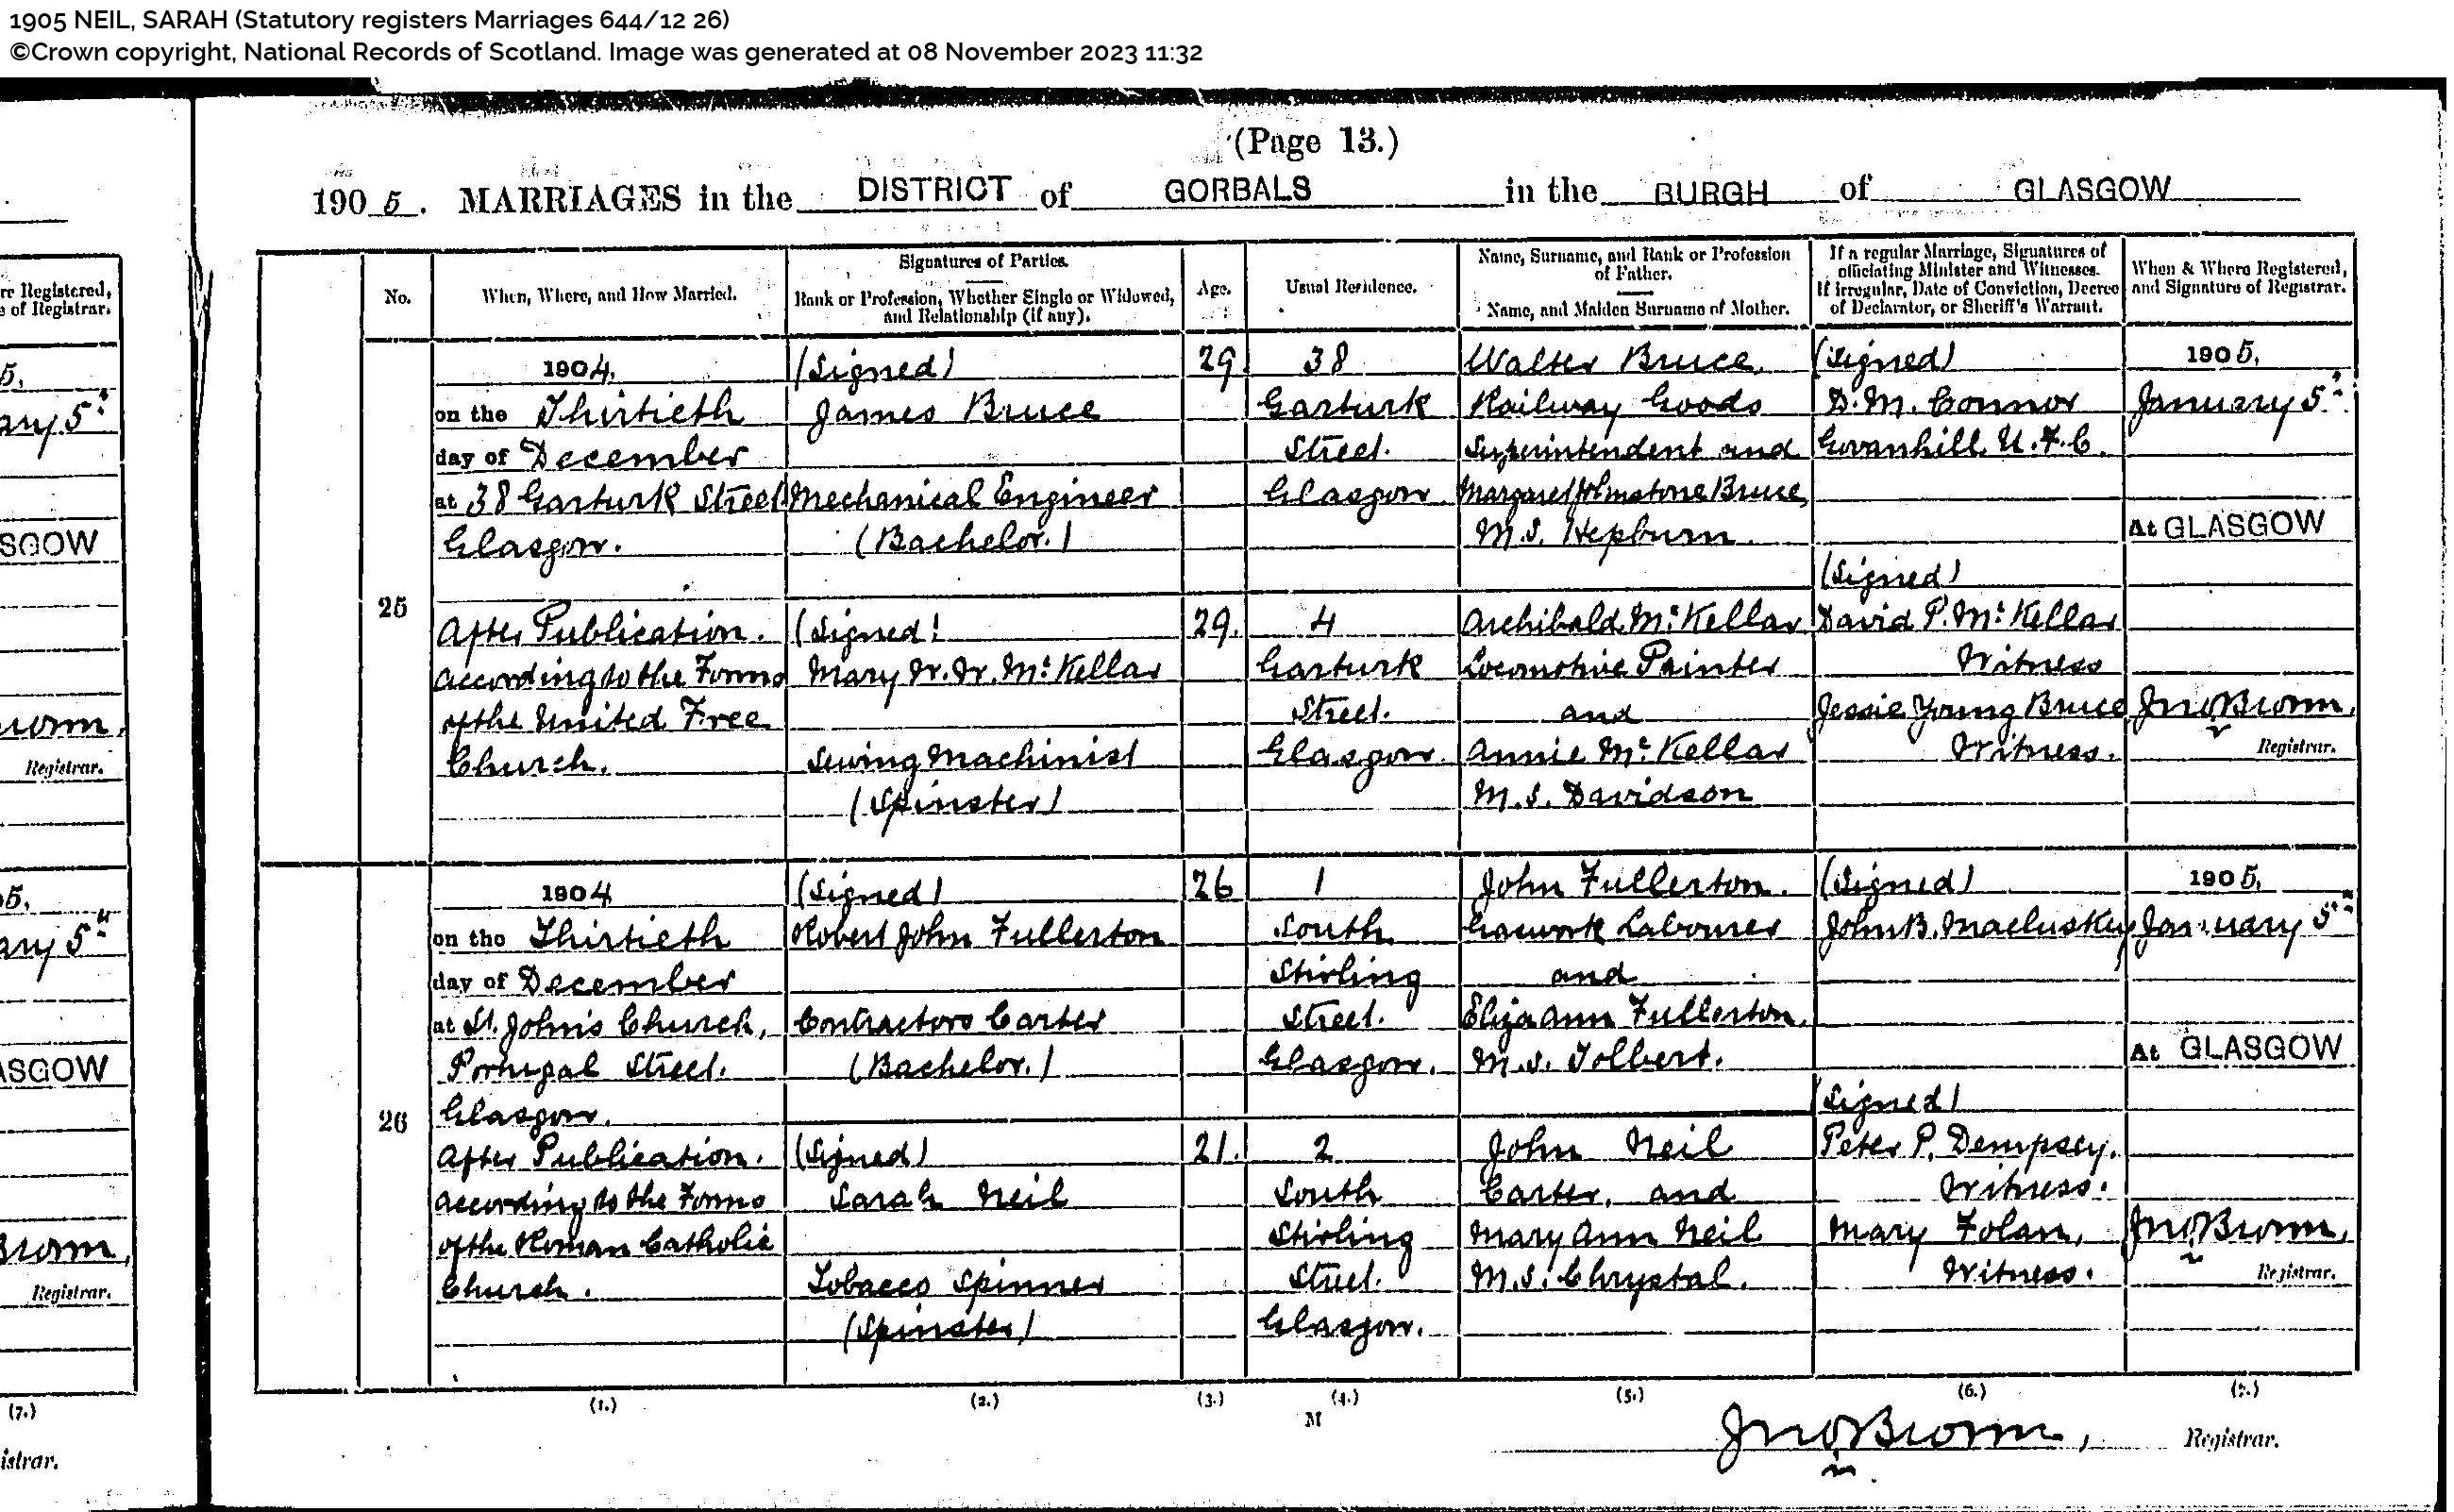 1905 NEIL, SARAH (Statutory registers Marriages 644/12 26)
©Crown copyright, National Records of Scotland. Image was generated at 08 November 2023 11:32
(Page 13.)
1905. MARRIAGES in the DISTRICT of GORBALS in the BURGH of GLASGOW
re Registered,
e of Registrar.
5.
ary 5"
SGOW
Registrar.
5.
ary 5"
ASGOW
Brown,
Registrar.
(7.)
istrar.
No.
When, Where, and How Married.
Signatures of Parties.
Rank or Profession, Whether Single or Widowed,
and Relationship (if any).
Age.
Usual Residence.
Name, Surname, and Rank or Profession
of Father.
Name, and Maiden Surname of Mother.
If a regular Marriage, Signatures of
officiating Minister and Witnesses.
If irregular, Date of Conviction, Decree
of Declarator, or Sheriff's Warrant.
When & Where Registered,
and Signature of Registrar.
25
1904.
on the Thirtieth
day of December
at 38 Garturk Street
Glasgow.
After Publication.
according to the Forms
of the United Free
Church.
(Signed)
James Bruce
Mechanical Engineer
(Bachelor.)
(Signed)
Mary W. W. McKellar
Sewing Machinist
(Spinster)
29.
29.
38
Garturk
Street.
Glasgow.
4
Garturk
Street.
Glasgow.
Walter Bruce,
Railway Goods
Superintendent and
Margaret Johnstone Bruce,
M.S. Hepburn.
Archibald McKellar
Locomotive Painter
and
Annie McKellar
M.S. Davidson
(Signed)
D. M. Connor
Govanhill U.F.C.
(Signed)
David P. McKellar
Witness
Jessie Young Bruce
Witness.
1905.
January 5"
At GLASGOW
Jno Brown,
Registrar.
26
1904
on the Thirtieth
day of December
at St. John's Church,
Portugal Street.
Glasgow.
After Publication.
according to the Forms
of the Roman Catholic
Church.
(Signed)
Robert John Fullerton
Contractors Carter
(Bachelor.)
(Signed)
Sarah Neil
Tobacco Spinner
(Spinster)
26
21.
1
South
Stirling
Street.
Glasgow.
2
South
Stirling
Street.
Glasgow.
John Fullerton.
Gaswork Labourer
and
Eliza Ann Fullerton,
M.S. Tolbert.
John Neil
Carter, and
Mary Ann Neil
M.S. Chrystal.
(Signed)
John B. Macluskey
(Signed)
Peter P. Dempsey.
Witness.
Mary Folan,
Witness.
1905.
January 5"
At GLASGOW
Jno Brown,
Registrar.
(1.) (2.) (3.) (4.) (5.) (6.) (7.)
M
Jno Brown, Registrar.